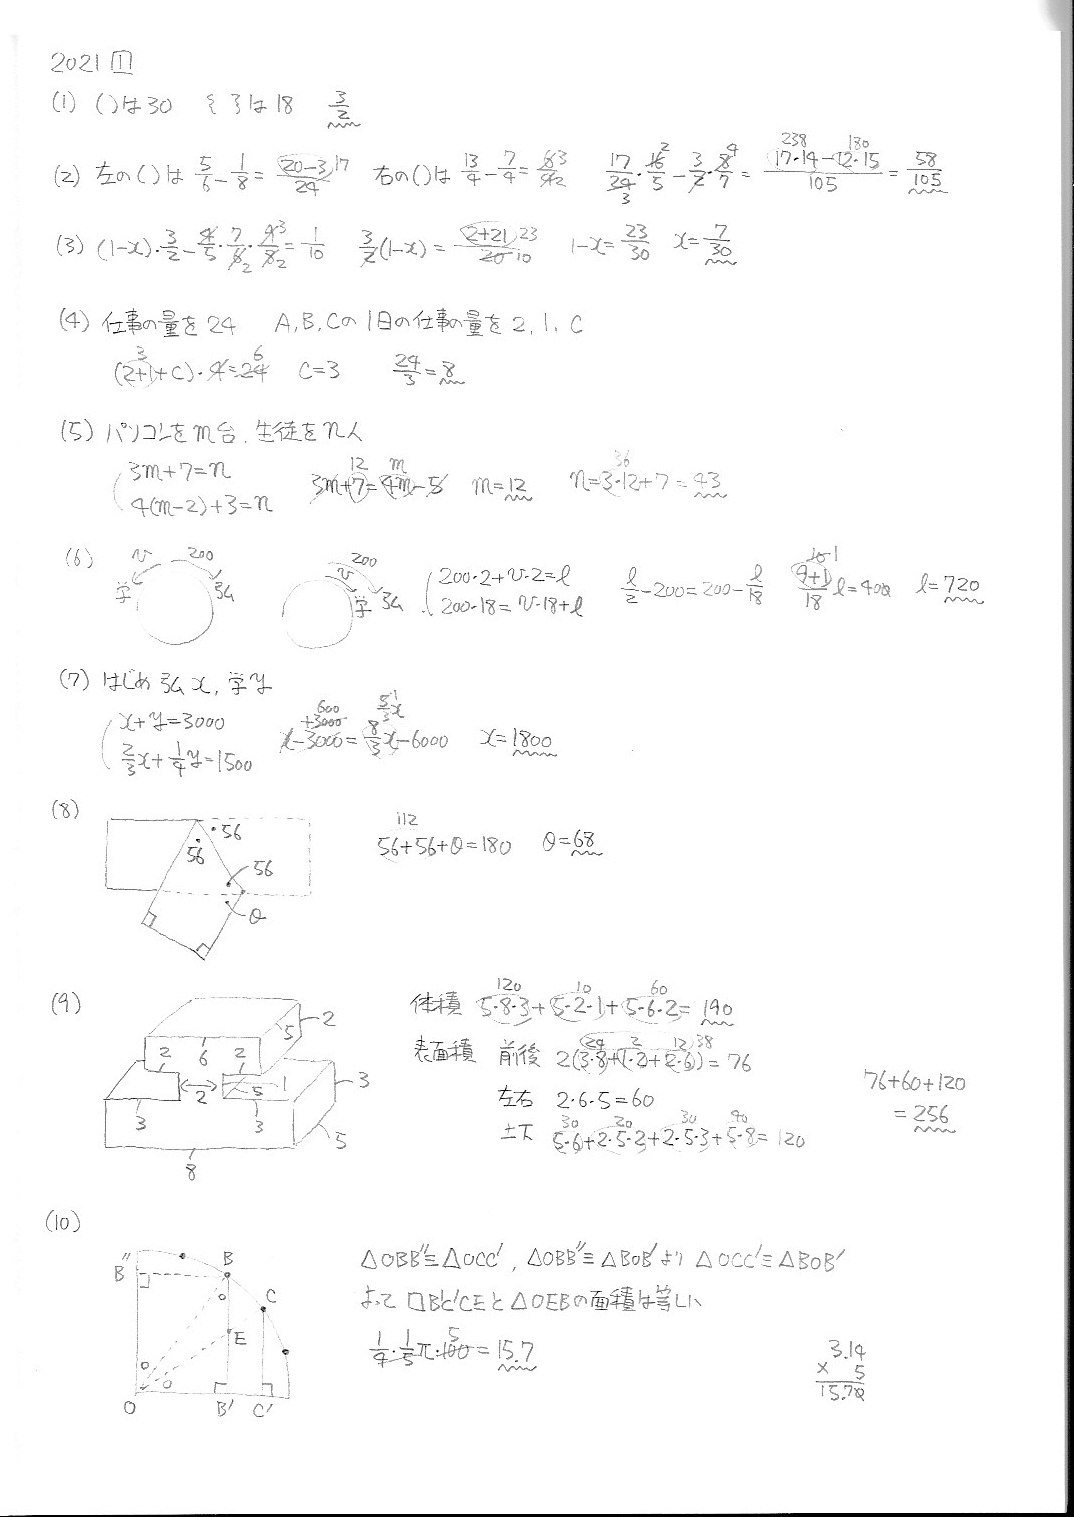 2021 1
(1) ( )は30 { }は18 3/2
(2) 左の( )は 5/6 - 1/8 = (20-3)17/24 右の( )は 13/4 - 7/4 = 63/42 17/24 3・16 2/5 - 3/2・8 4/7 = 238 180 17・14-12・15/105 = 58/105
(3) (1-x)・3/2 - 4/5・7/6 2・4 3/8 2 = 1/10 3/2(1-x) = (2+21)23/20 10 1-x = 23/30 x = 7/30
(4) 仕事の量を24 A, B, Cの1日の仕事の量を2, 1, C
(2+1+C)・4=24 3 6 C=3 24/3=8
(5) パソコンをm台, 生徒をn人
3m+7=n
4(m-2)+3=n
3m+7=4m-5 12 m m=12 n=3・12+7=43 36
(6) v 200 学 弘
200 v 学 弘
200・2+v・2=l
200・18=v・18+l
l/2-200=200-l/18 (9+1)/18 l=400 10 1 l=720
(7) はじめ 弘x, 学y
x+y=3000
2/3x+1/4y=1500
x-3000=8/3x-6000 600 +3000 5/3x 1 x=1800
(8) 56 56 56 θ
112
56+56+θ=180 θ=68
(9) 2 5 2 6 2 2 1 5 3 3 3 5 8
体積 5・8・3+5・2・1+5・6・2=190 120 10 60
表面積 前後 2(3・8+1・2+2・6)=76 24 2 12 38
左右 2・6・5=60
上下 5・6+2・5・2+2・5・3+5・8=120 30 20 30 40
76+60+120
=256
(10) B'' B C E O B' C'
△OBB''≡△OCC', △OBB''≡△BOB'より△OCC'≡△BOB'
よって□B'C'CEと△OEBの面積は等しい
1/4・1/5π・100=15.7 5
3.14
× 5
15.70